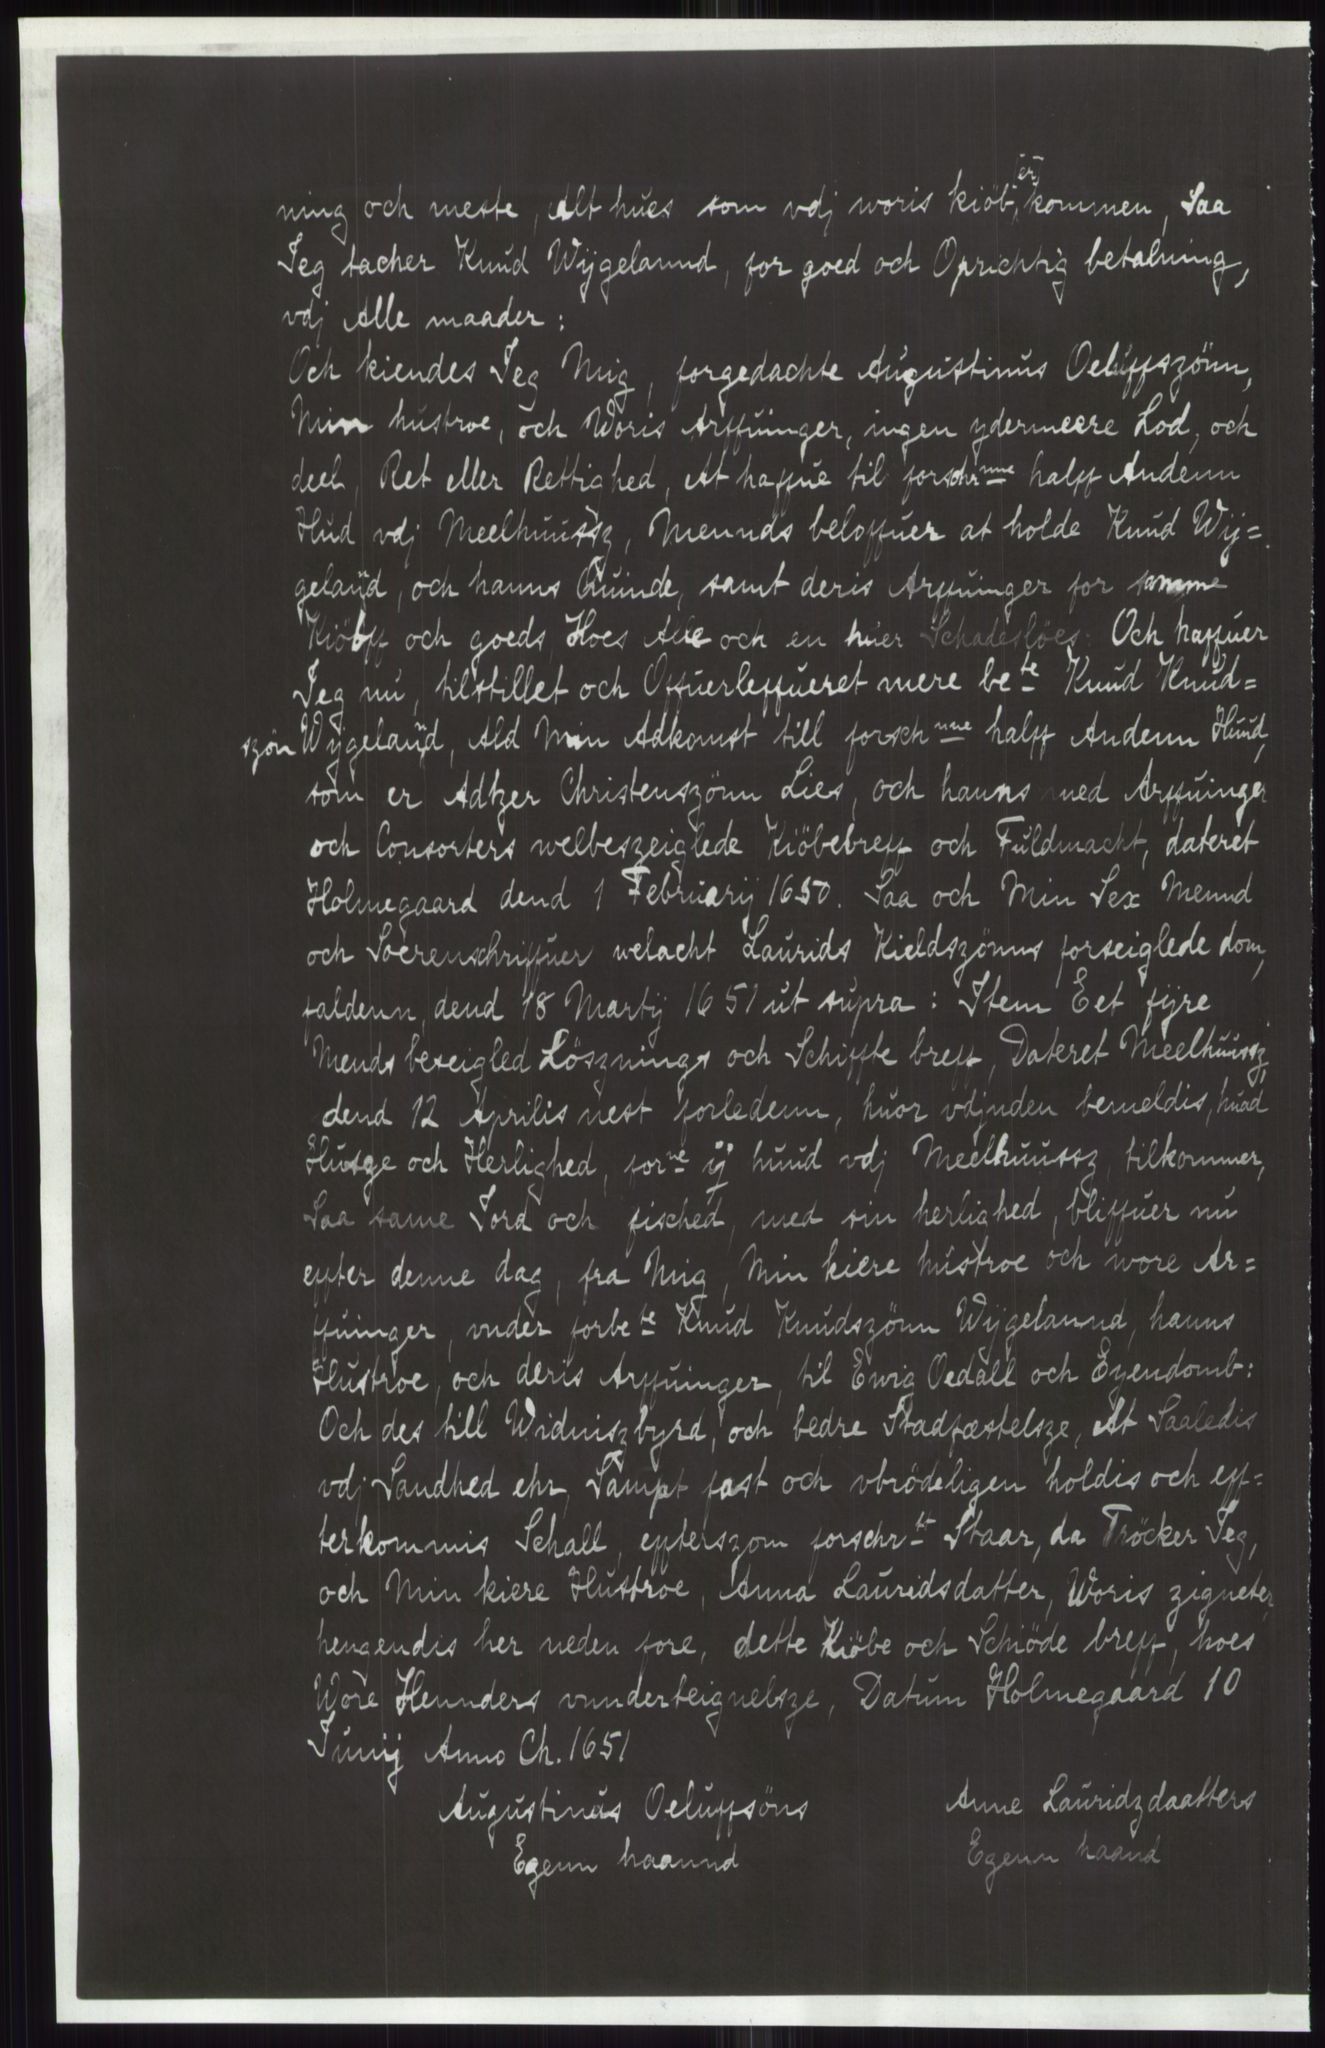 ning och meste, Alt hues som vdj woris kiöb, [er] kommen, Saa
Jeg tacher Knud Wijgelannd, for goed och Oprichtig betalning,
vdj Alle maader:
Och kiendes Jeg Mig, forgedachte Augustinus Oeluffszönn,
Min hustroe, och Woris Arffuinger, ingen ydermeere Lod, och
deel, Ret eller Rettighed, At haffue til forschrnne halff Andenn
Hud vdj Meelhuussz, Mennds beloffuer at holde Knud Wij=
gelannd, och hanns Quinde, samt deris Arffuinger for samme
Kiöbff och goeds, Hoes Alle och en huer Schadeslöes: Och haffuer
Jeg nu, tilstillet och Offuerleffueret mere bete Knud Knud=
szön Wijgelannd, Ald Min Adkomst till forschnne halff Andenn Huud,
som er Adtzer Christenszönn Lies, och hanns med Arffuinger
och Consorters welbeszeiglede Kiöbebreff och Fuldmacht, dateret
Holmegaard dend 1 Februarij 1650. Saa och Min Sex Mennd
och Soerenschriffuer welacht Laurids Kieldszönns forseiglede dom,
faldenn, dend 18 Martij 1651 ut supra: Item Eet fijre
Mends beseigled Lösznings och Schiffte breff, Dateret Meelhuussz,
dend 12 Aprilis nest forledenn, huor vdjnden bemeldis, huad
Husge och Herlighed, forne ij huud vdj Meelhuussz, tilkommer,
Saa same Jord och fisched, med sin herlighed, bliffuer nu
effter denne dag, fra Mig, Min kiere hustroe och wore Ar=
ffuinger, vnder forbete Knud Knudszönn Wijgelannd, hanns
Hustroe, och deris Arffuinger, til Ewig Oedall och Eyendomb:
Och des till Widniszbyrd, och bedre Stadfæstelsze, At Saaledis
vdj Sandhed ehr, Sampt fast och vbrödeligen holdis och eff=
terkommis Schall, effterszom forschrtt Staar, da Tröcker Jeg,
och Min kiere Hustroe, Anna Lauridsdatter, Woris zigneter,
hengendis her neden fore, dette Kiöbe och Schiöde breff, hoes
Wore Hennders vnnderteignelsze, Datum Holmegaard 10
Junij Anno Ch. 1651
Augustinus Oeluffsöns Anne Lauridzdaatters
Egenn haannd Egenn haand